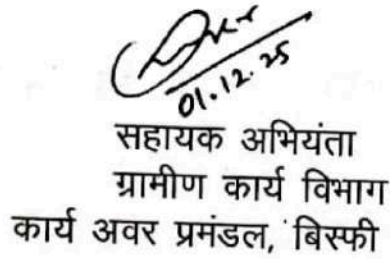 01.12.25
सहायक अभियंता
ग्रामीण कार्य विभाग
कार्य अवर प्रमंडल, बिस्फी